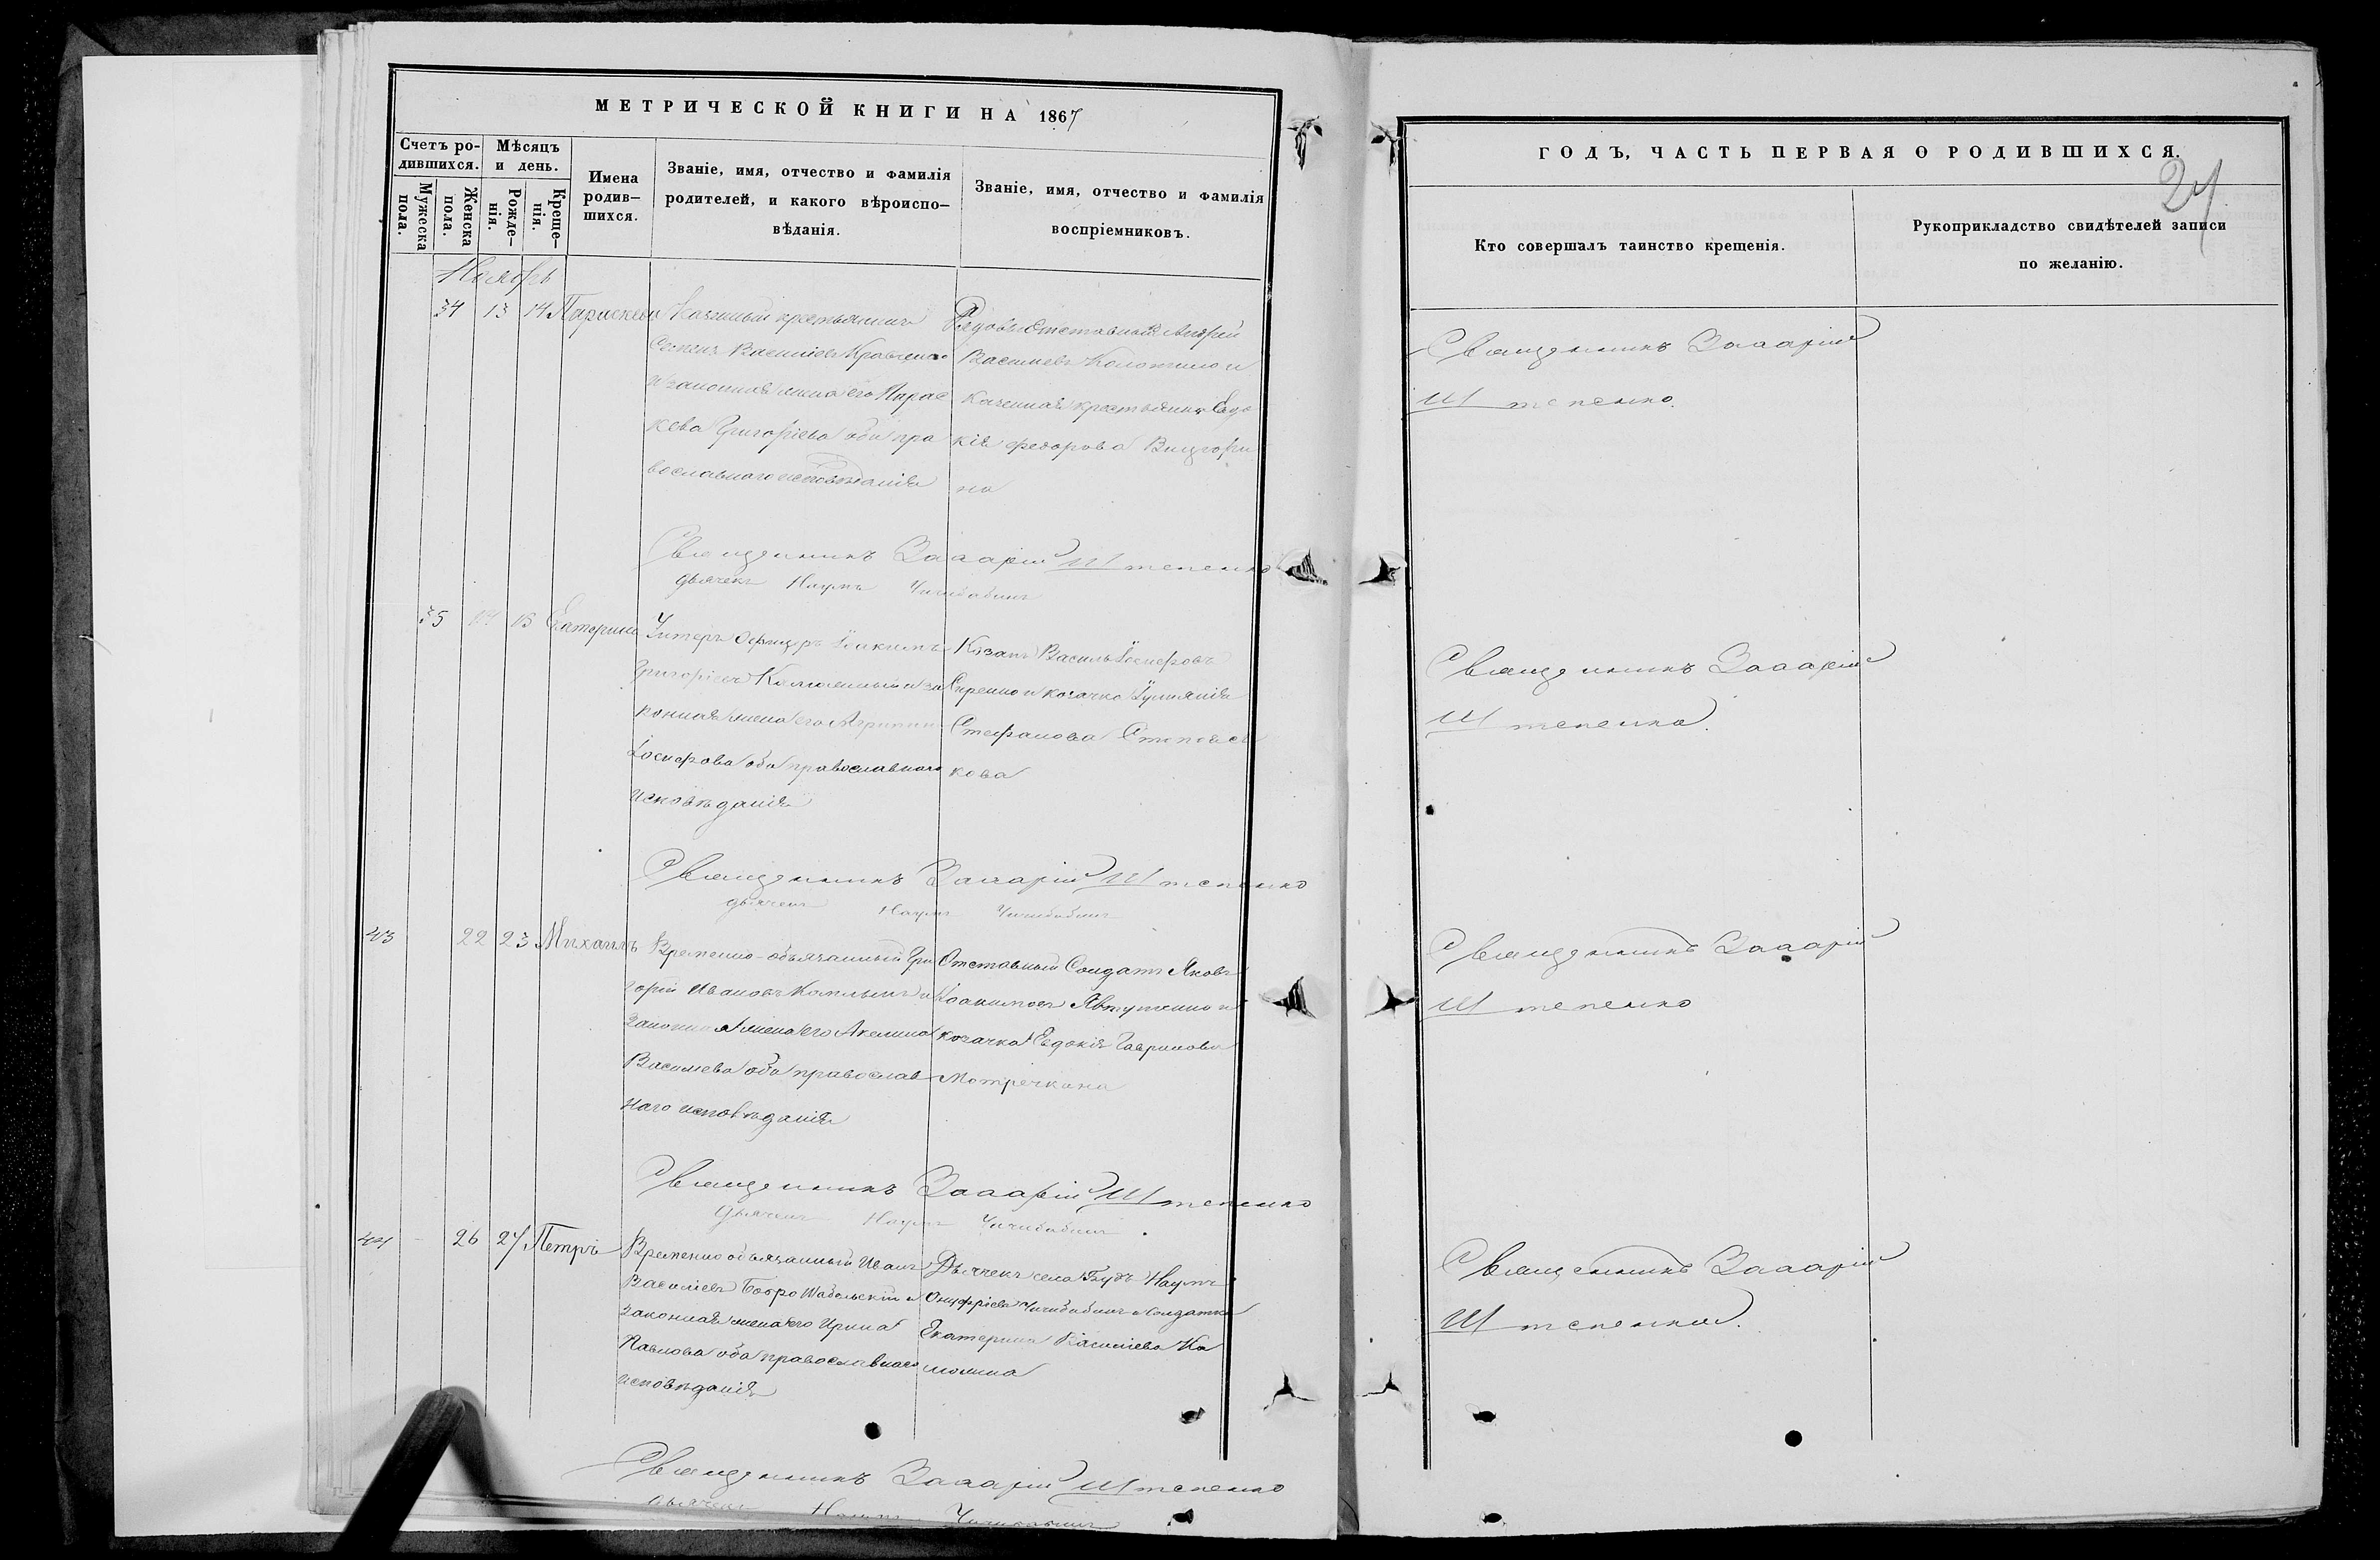 МЕТРИЧЕСКОЙ КНИГИ НА 1867
Счетъ ро-
дившихся.
Мужеска
пола.
Женска
пола.
Мѣсяцъ
и день.
Рожде-
нія.
Креще-
нія.
Имена
родив-
шихся.
Званіе, имя, отчество и фамилія
родителей, и какого вѣроиспо-
вѣданія.
Званіе, имя, отчество и фамилія
воспріемниковъ.
Ноябрь
34 13 14 Параскева
Казенный крестьянинъ
Семенъ Василіевъ Кравченко
и законная жена его Парас
кева Григоріева оба пра
вославнаго исповѣданія
Отставный Андрей
Василіевъ и
Казенная крестьянка Евдо
кія Федорова
на
Священникъ Захарій Штепенко
дьячекъ Наумъ Чичибабинъ
35 14 15 Екатерина
Унтеръ Офицеръ Іоакимъ
Григоріевъ и за
конная жена его
Іосифова оба православнаго
исповѣданія
Козакъ Василь Іосифовъ
и козачка Іуліанія
Стефанова
кова
Священникъ Захарій Штепенко
дьячекъ Наумъ Чичибабинъ
43 22 23 Михаилъ
Временно-обязанный Гри
горій Ивановъ и
законная жена его Акилина
Василіева оба православ
наго исповѣданія
Отставный Солдатъ Яковъ
Іоакимовъ Явтушенко и
козачка Евдокія Гаврилова
Священникъ Захарій Штепенко
дьячекъ Наумъ Чичибабинъ
44 26 27 Петръ
Временно обязанный Иванъ
Василіевъ и
законная жена его Ирина
Павлова оба православнаго
исповѣданія
Дьячекъ села Будъ Наумъ
Онуфріевъ Чичибабинъ и Солдатка
Екатерина Василіева
Священникъ Захарій Штепенко
дьячекъ Наумъ Чичибабинъ
ГОДЪ, ЧАСТЬ ПЕРВАЯ О РОДИВШИХСЯ.
24
Кто совершалъ таинство крещенія.
Рукоприкладство свидѣтелей записи
по желанію.
Священникъ Захарій
Штепенко.
Священникъ Захарій
Штепенко.
Священникъ Захарій
Штепенко
Священникъ Захарій
Штепенко.